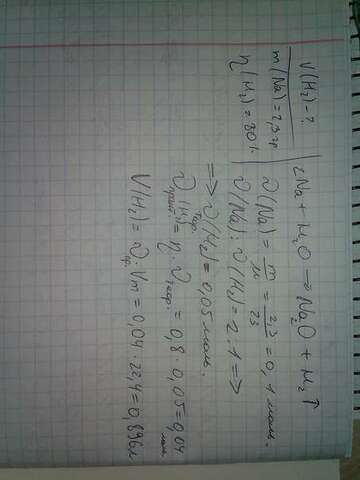 V(H₂) - ?
m(Na) = 2,3 гр
η(H₂) = 80%
2Na + H₂O → Na₂O + H₂↑
ν(Na) = m/μ = 2,3/23 = 0,1 моль.
ν(Na) : ν(H₂) = 2 : 1 =>
=> ν теор. (H₂) = 0,05 моль.
ν практ. (H₂) = η · ν теор. = 0,8 · 0,05 = 0,04 моль
V(H₂) = ν пр. · Vm = 0,04 · 22,4 = 0,896 л